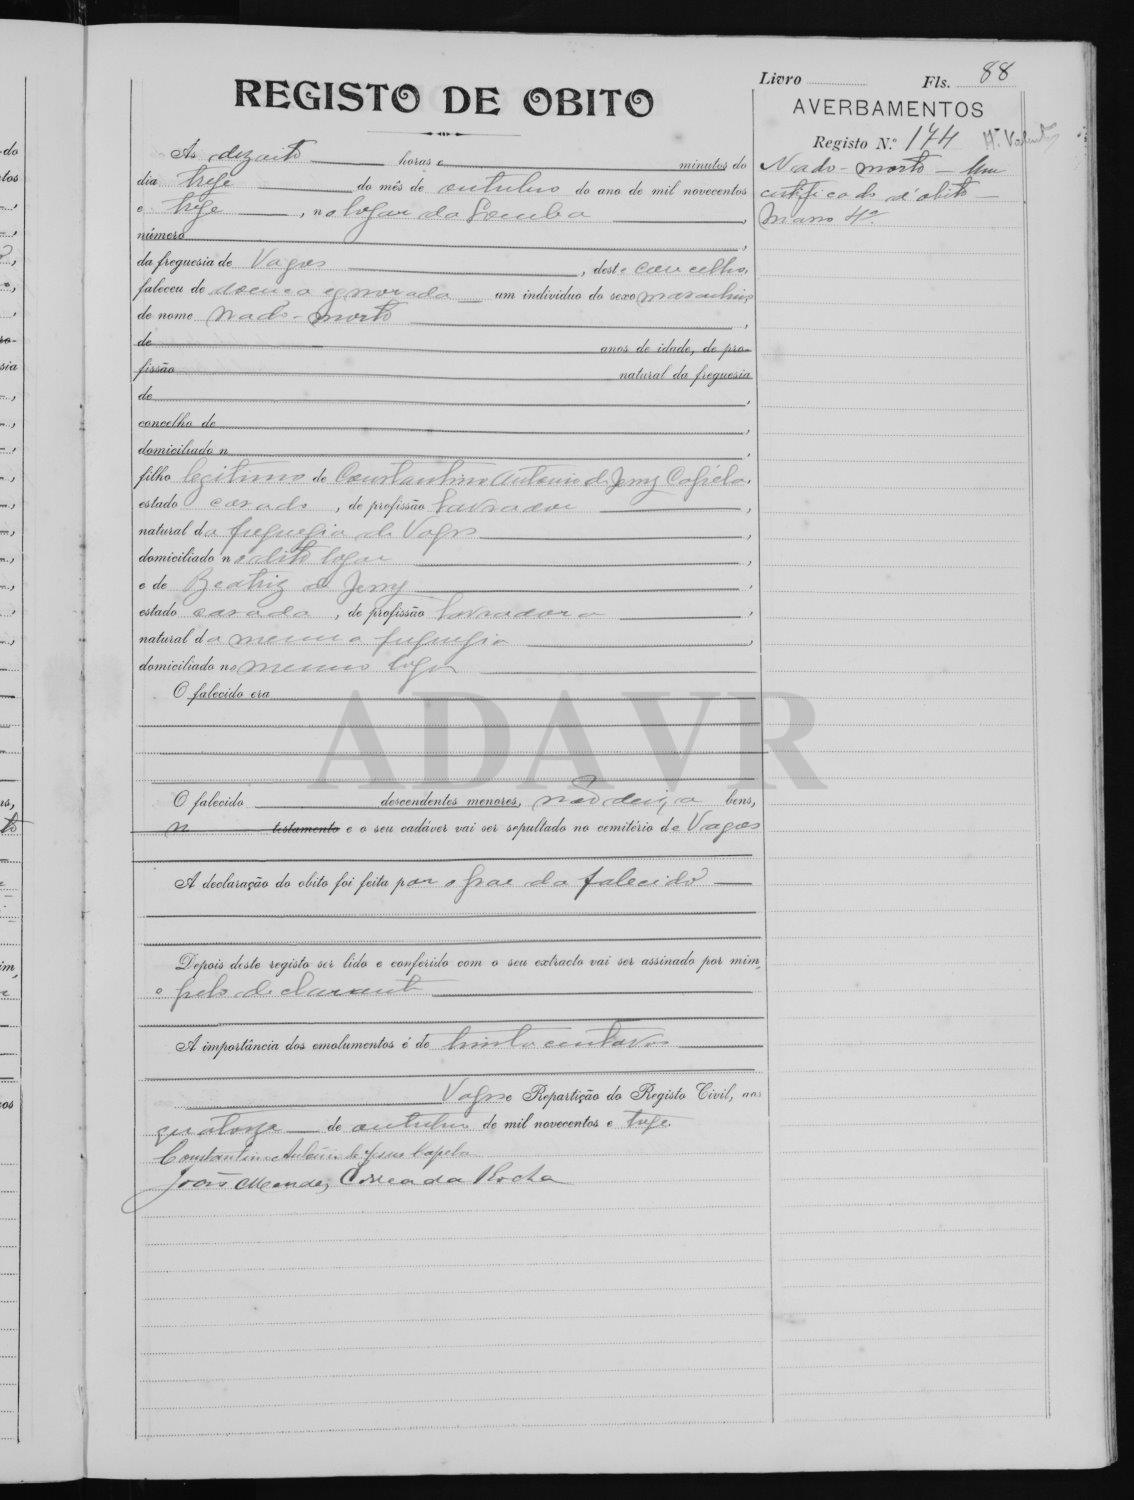 Livro Fls. 88
REGISTO DE OBITO
AVERBAMENTOS
Registo N.º 174
Às dezoito horas e minutos do
dia treze do mês de outubro do ano de mil novecentos
e treze, no logar da Lomba,
número,
da freguesia de Vagos, deste concelho,
faleceu de doença ignorada um indivíduo do sexo masculino
de nome nado-morto,
de anos de idade, de pro-
fissão natural da freguesia
de,
concelho de,
domiciliado n,
filho legitimo de Constantino Antonio de Jesus Capela,
estado casado, de profissão lavrador,
natural da freguesia de Vagos,
domiciliado no dito logar,
e de Beatriz de Jesus,
estado casada, de profissão lavradora,
natural da mesma freguesia,
domiciliado no mesmo logar
O falecido era
O falecido descendentes menores, não deixa bens,
n testamento e o seu cadáver vai ser sepultado no cemitério de Vagos
A declaração do obito foi feita por o pae do falecido
Depois deste registo ser lido e conferido com o seu extracto vai ser assinado por mim,
e pelo declarante
A importância dos emolumentos é de trinta centavos
Vagos e Repartição do Registo Civil, aos
quatorze de outubro de mil novecentos e treze
Constantino Antonio de Jesus Kapela
João Mendes Correa da Rocha
Nado-morto - Um
certificado d'obito -
Masso 4º
ADAVR